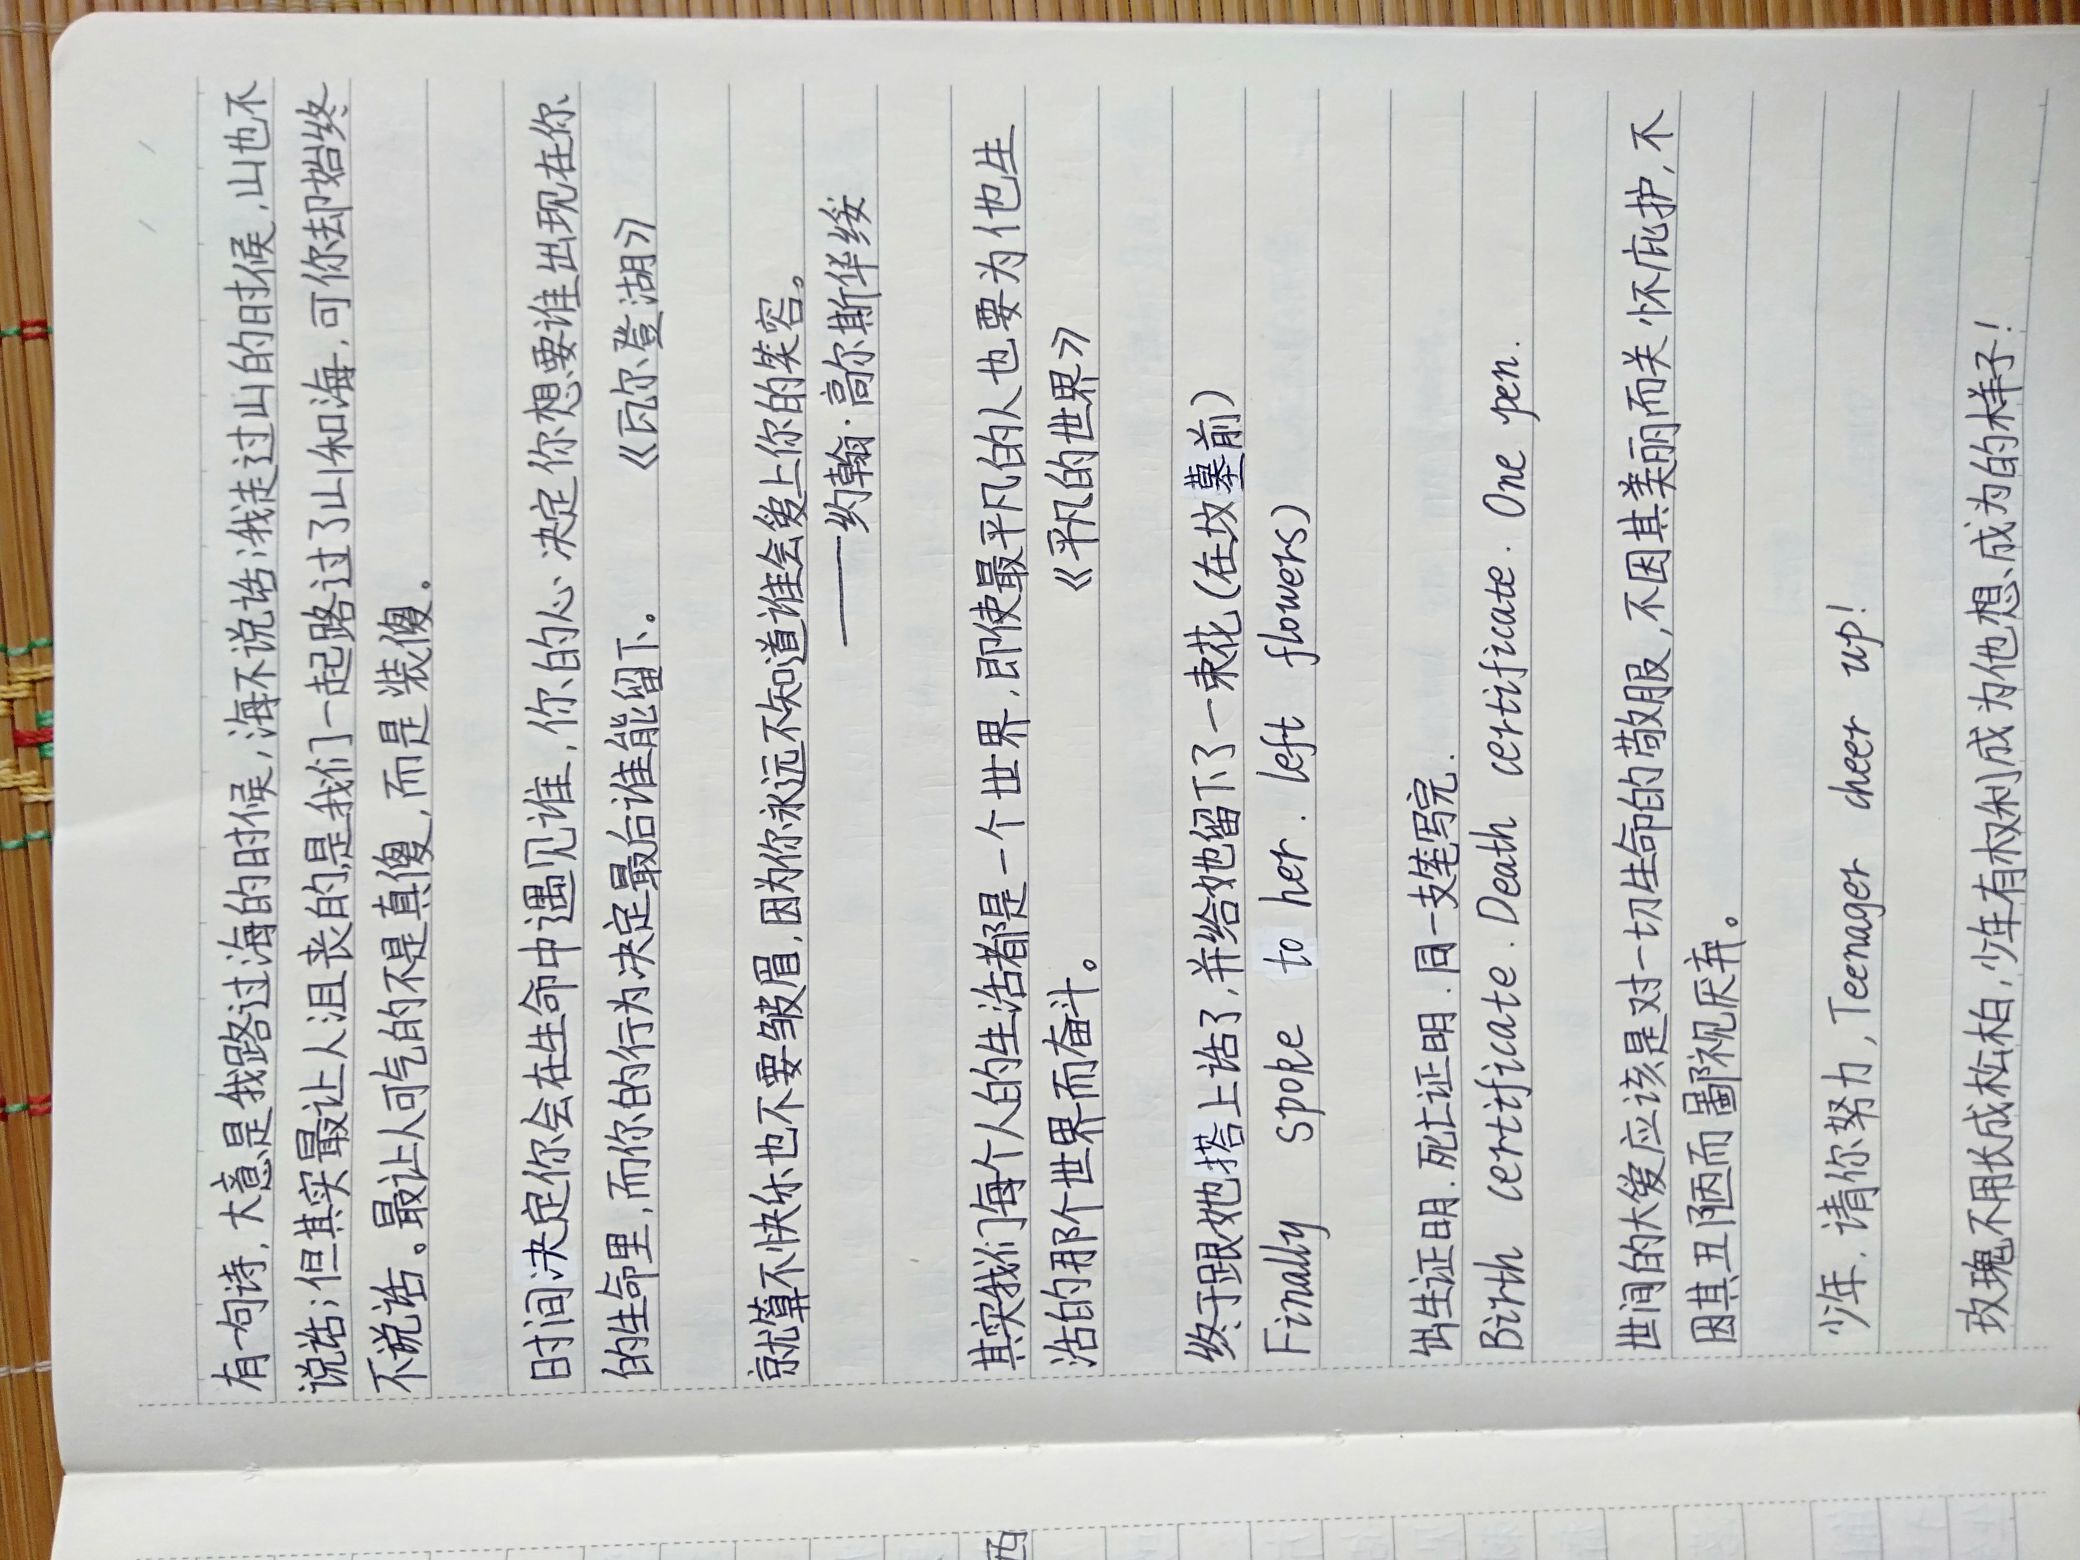 有一句诗,大意是我路过海的时候,海不说话;我走过山的时候,山也不
说话;但其实最让人沮丧的是我们一起路过了山和海,可你却始终
不说话。最让人可气的不是真傻,而是装傻。
时间决定你会在生命中遇见谁,你的心决定你想要谁出现在你
的生命里,而你的行为决定最后谁能留下。 《瓦尔登湖》
就算不快乐也不要皱眉,因为你永远不知道谁会爱上你的笑容。
——约翰·高尔斯华绥
其实我们每个人的生活都是一个世界,即使最平凡的人也要为他生
活的那个世界而奋斗。 《平凡的世界》
终于跟她搭上话了,并给她留下了一束花(在坟墓前)
Finally spoke to her. left flowers)
出生证明.死亡证明.同一支笔写完.
Birth certificate. Death certificate. One pen.
世间的大爱应该是对一切生命的敬服,不因其美丽而关怀庇护,不
因其丑陋而鄙视厌弃。
少年.请你努力,Teenager cheer up!
玫瑰不用长成松柏,少年有权利成为他想成为的样子!
西